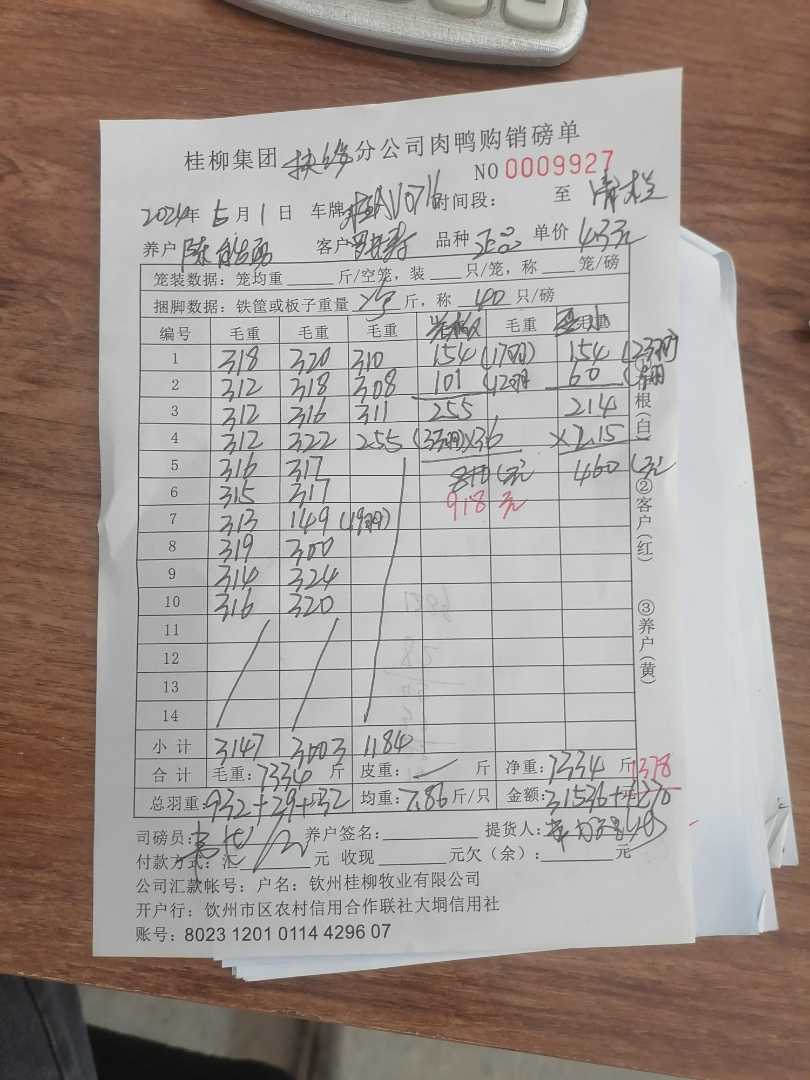 桂柳集团 扶绥 分公司肉鸭购销磅单
NO 0009927
2024年 5月 1日 车牌 桂AV0716 时间段： 至
养户 陈 客户 品种 正品 单价 4.3元
笼装数据：笼均重 斤/空笼，装 只/笼，称 笼/磅
捆脚数据：铁筐或板子重量 斤，称 40 只/磅
编号 毛重 毛重 毛重 毛重 毛重
1 318 320 310 154 (17只) 154 (23只)
2 312 318 308 101 (12只) 60
3 312 316 311 255 214
4 312 322 255 (33只) ×3.6 ×2.15
5 316 317 460 (元)
6 315 317 918 元
7 313 149 (19只)
8 319 300
9 314 324
10 316 320
11
12
13
14
小计 3147 3003 1184
合计 毛重：7334 斤 皮重： 斤 净重：7334 斤 1378
总羽重：932+29+32 均重：7.86 斤/只 金额：31536+
司磅员： 养户签名： 提货人：
付款方式：汇 元 收现 元欠（余）： 元
公司汇款帐号：户名：钦州桂柳牧业有限公司
开户行：钦州市区农村信用合作联社大垌信用社
账号：8023 1201 0114 4296 07
根（白）
②客户（红）
③养户（黄）